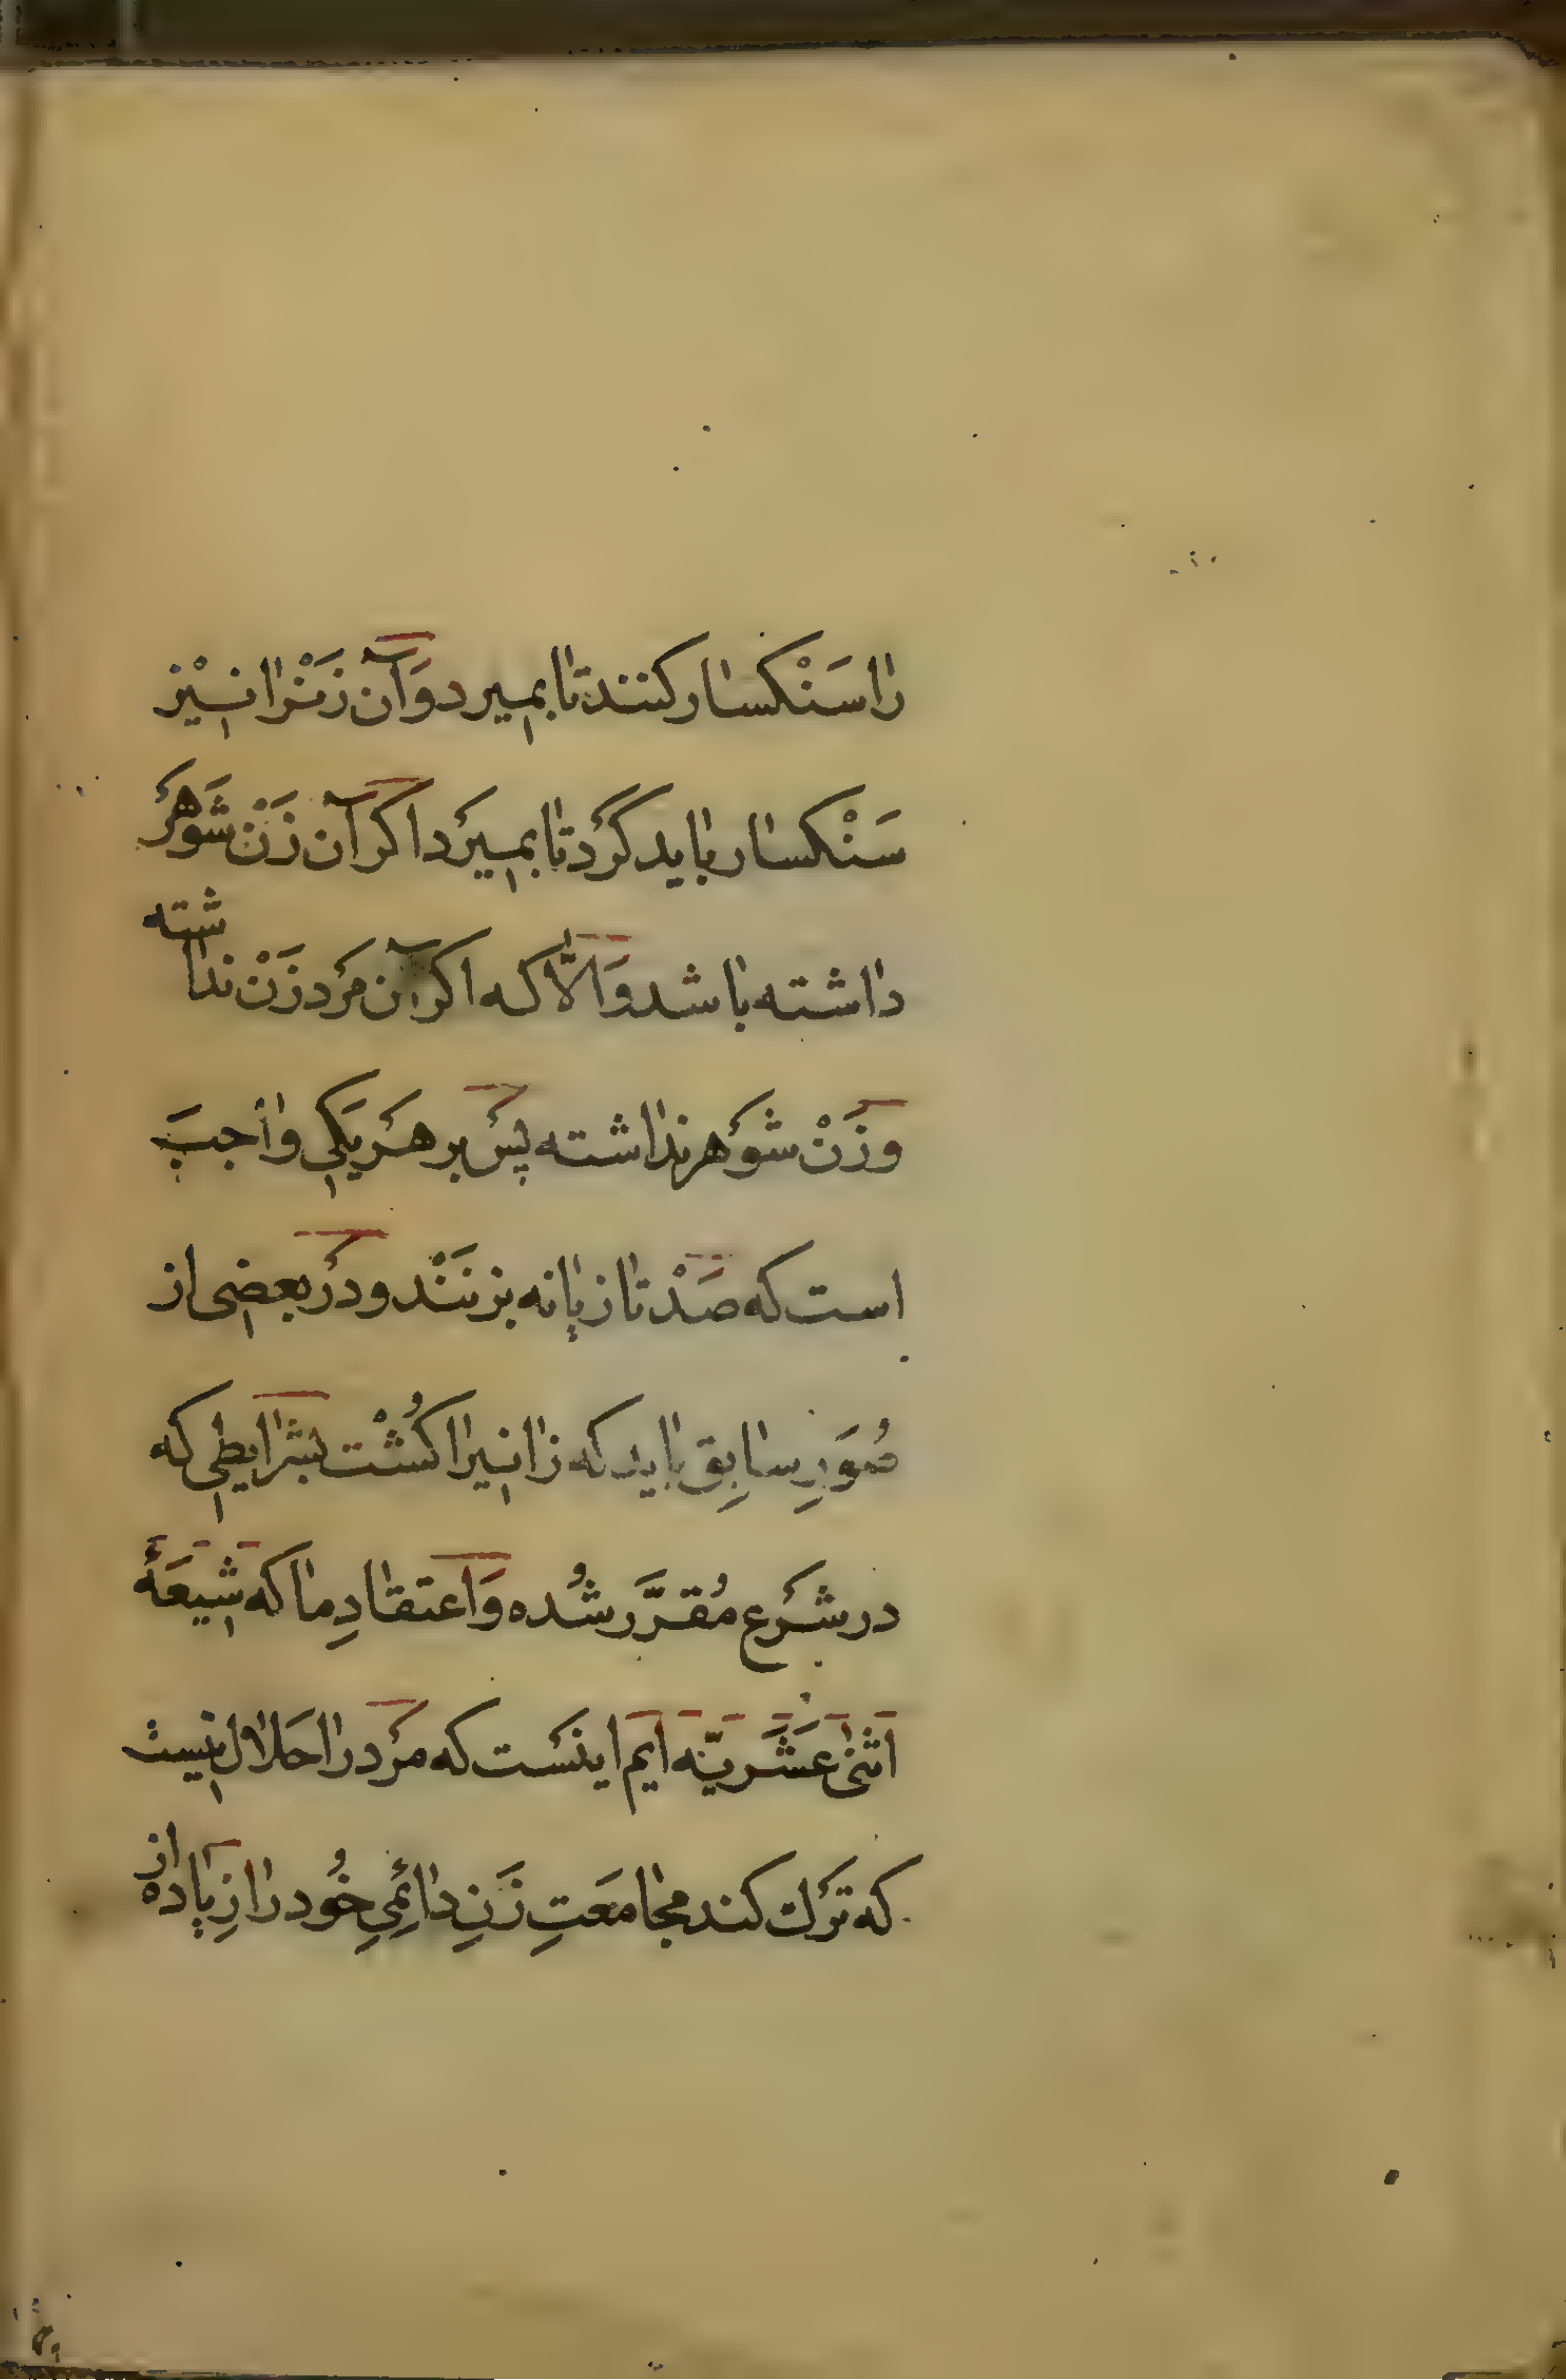 را سَنْكسار كنند تا بميرد وَ آن زَنْرا نيْز
سَنْكسار بايد كرَد تا بميرَد اكر آن زَنْ شَوهَر
داشته باشد وَ الّا كه اكر آن مرَد زَنْ نداشته
و زَنْ شوَهر نداشته پسَ بر هَر يَكي واجبَ
است كه صَدْ تازيانه بزنَنْد و درَ بعضى از
صُوَرِ سابِق بايد كه زانيرا كُشْت بشرايطي كه
در شَرع مُقرَّر شُده وَ اعتقادِ ما كه شيعَهٔ
اثنى عَشَريّه ايم اينسَت كه مرَد را حَلال نيست
كه ترَك كند مجامعَتِ زَنِ دائميِ خُود را زِياده از